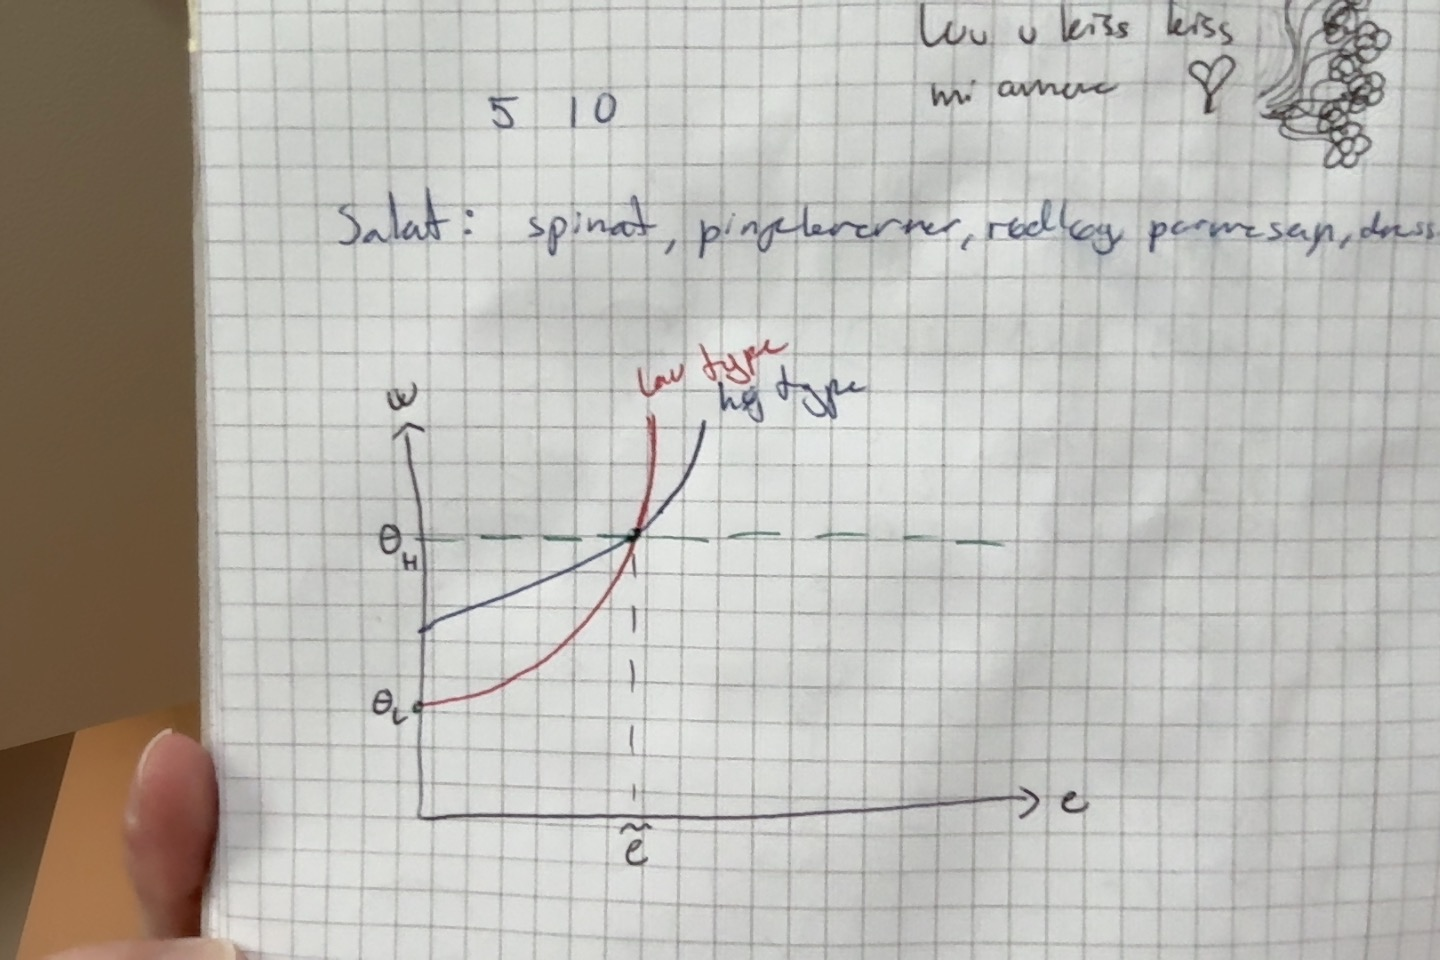 luv u kiss kiss
mi amore
5 10
Salat: spinat, pinjekerner, rødkog parmesan, dress
low type
høj type
w
θH
θL
e
ẽ